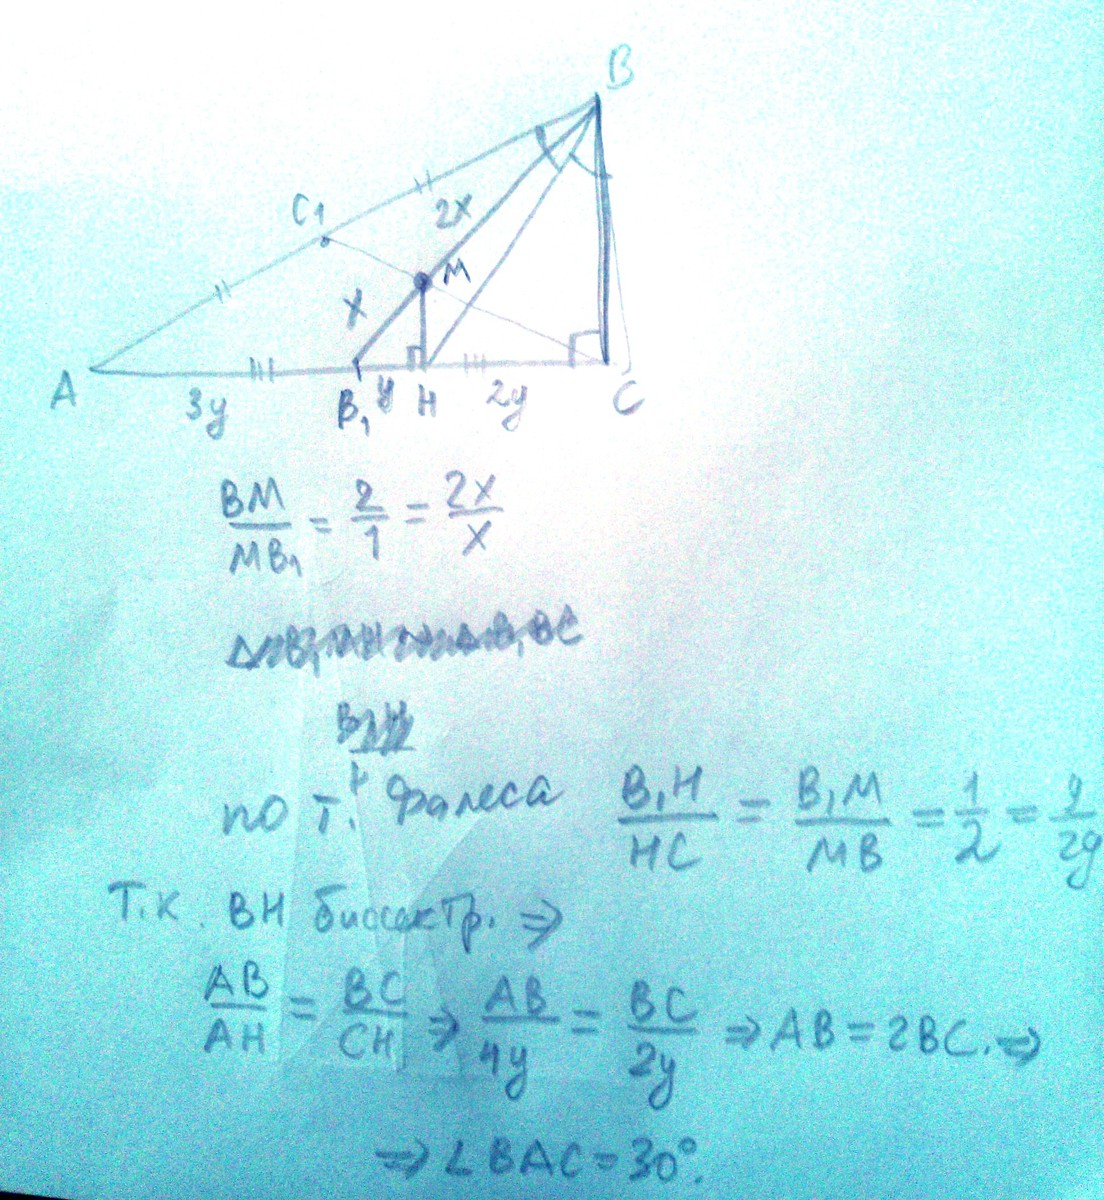 B
C₁
2x
M
x
A
3y
B₁
y
H
2y
C
BM/MB₁ = 2/1 = 2x/x
по т. Фалеса B₁H/HC = B₁M/MB = 1/2 = y/2y
Т.к. BH биссектр. ⇒
AB/AH = BC/CH ⇒ AB/4y = BC/2y ⇒ AB = 2BC. ⇒
⇒ ∠BAC = 30°.